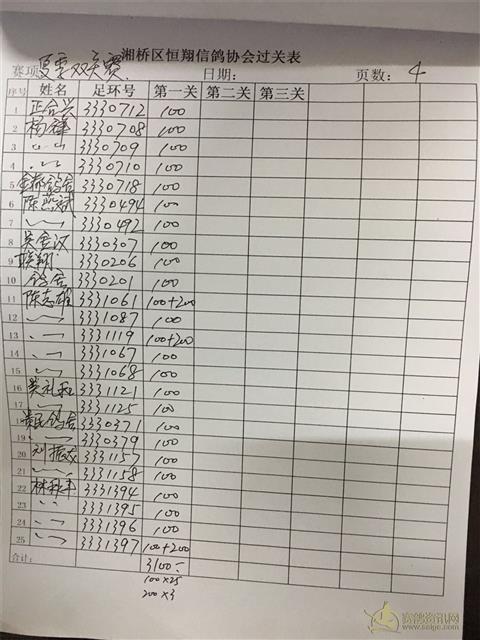 湘桥区恒翔信鸽协会过关表
赛项 夏季双关赛 日期: 页数: 4
序号 姓名 足环号 第一关 第二关 第三关
1 正合兴 3330712 100
2 杨祥 3330708 100
3 〃 3330709 100
4 〃 3330710 100
5 鸽舍 3330718 100
6 陈燕斌 3330494 100
7 〃 3330492 100
8 吴金汉 3330307 100
9 联翔 3330206 100
10 鸽舍 3330201 100
11 陈志雄 3331061 100+200
12 〃 3331087 100
13 〃 3331119 100+200
14 〃 3331067 100
15 〃 3331068 100
16 黄礼和 3331121 100
17 〃 3331125 100
18 鸽舍 3330371 100
19 〃 3330379 100
20 刘振 3331157 100
21 〃 3331158 100
22 林秋丰 3331394 100
23 〃 3331395 100
24 〃 3331396 100
25 〃 3331397 100+200
合计: 3100=
100×25
200×3
赛鸽资讯网
www.saige.com